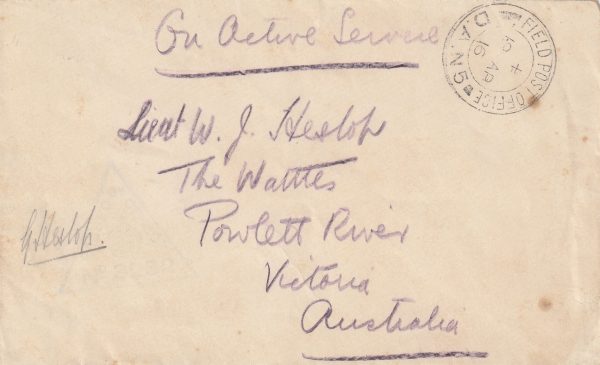 On Active Service
FIELD POST OFFICE
D.A.N.5
4
5 AP
16
Lieut W. J. Heslop
The Wattles
Powlett River
G Heslop.
Victoria
Australia